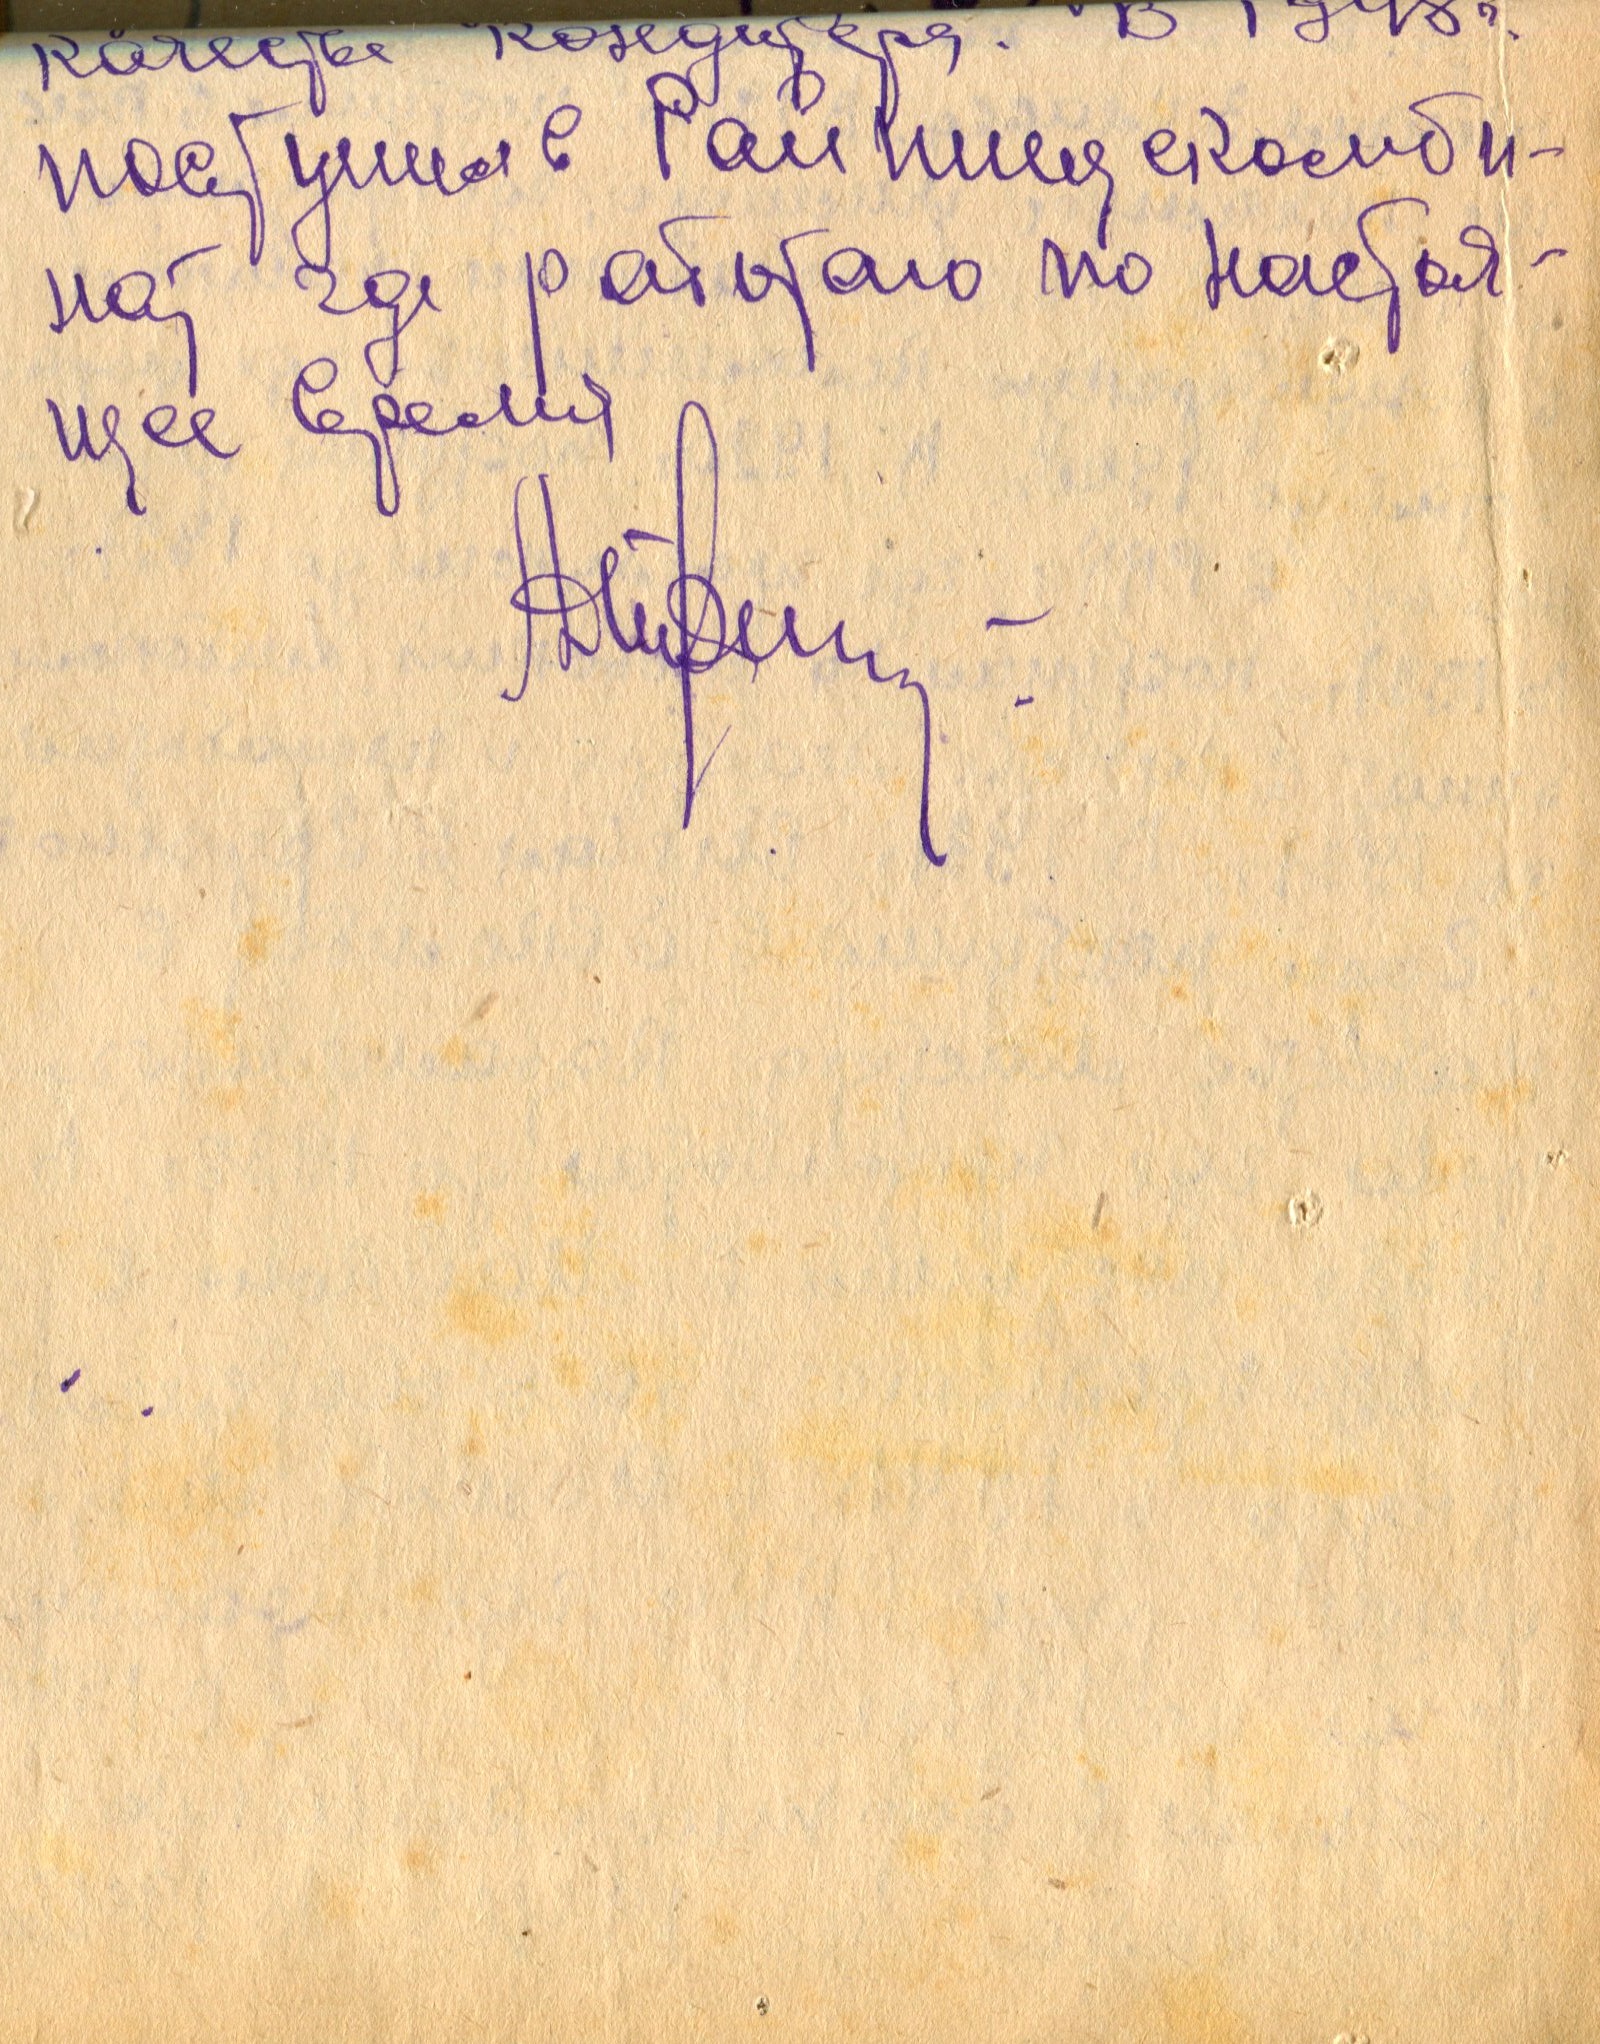 качестве кондитера. В 1948 г.
поступил в Райпищекомби-
нат где работаю по настоя-
щее время